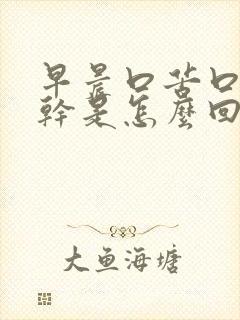 早晨口苦口
幹是怎麼回
大魚海塘